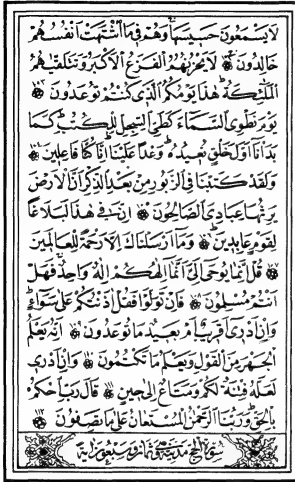 لَا يَسْمَعُونَ حَسِيسَهَا وَهُمْ فِي مَا اشْتَهَتْ أَنْفُسُهُمْ
خَالِدُونَ ۝ لَا يَحْزُنُهُمُ الْفَزَعُ الْأَكْبَرُ وَتَتَلَقَّيهُمُ
الْمَلٰئِكَةُ هٰذَا يَوْمُكُمُ الَّذِي كُنْتُمْ تُوعَدُونَ ۝
يَوْمَ نَطْوِي السَّمَاءَ كَطَيِّ السِّجِلِّ لِلْكُتُبِ كَمَا
بَدَأْنَا أَوَّلَ خَلْقٍ نُعِيدُهُ وَعْدًا عَلَيْنَا إِنَّا كُنَّا فَاعِلِينَ ۝
وَلَقَدْ كَتَبْنَا فِي الزَّبُورِ مِنْ بَعْدِ الذِّكْرِ أَنَّ الْأَرْضَ
يَرِثُهَا عِبَادِيَ الصَّالِحُونَ ۝ إِنَّ فِي هٰذَا لَبَلَاغًا
لِقَوْمٍ عَابِدِينَ ۝ وَمَا أَرْسَلْنَاكَ إِلَّا رَحْمَةً لِلْعَالَمِينَ
۝ قُلْ إِنَّمَا يُوحَى إِلَيَّ أَنَّمَا إِلٰهُكُمْ إِلٰهٌ وَاحِدٌ فَهَلْ
أَنْتُمْ مُسْلِمُونَ ۝ فَإِنْ تَوَلَّوْا فَقُلْ آذَنْتُكُمْ عَلَى سَوَاءٍ
وَإِنْ أَدْرِي أَقَرِيبٌ أَمْ بَعِيدٌ مَا تُوعَدُونَ ۝ إِنَّهُ يَعْلَمُ
الْجَهْرَ مِنَ الْقَوْلِ وَيَعْلَمُ مَا تَكْتُمُونَ ۝ وَإِنْ أَدْرِي
لَعَلَّهُ فِتْنَةٌ لَكُمْ وَمَتَاعٌ إِلَى حِينٍ ۝ قَالَ رَبِّ احْكُمْ
بِالْحَقِّ وَرَبُّنَا الرَّحْمٰنُ الْمُسْتَعَانُ عَلَى مَا تَصِفُونَ ۝
سورة الحج مدنية وهي ثمان وسبعون اية